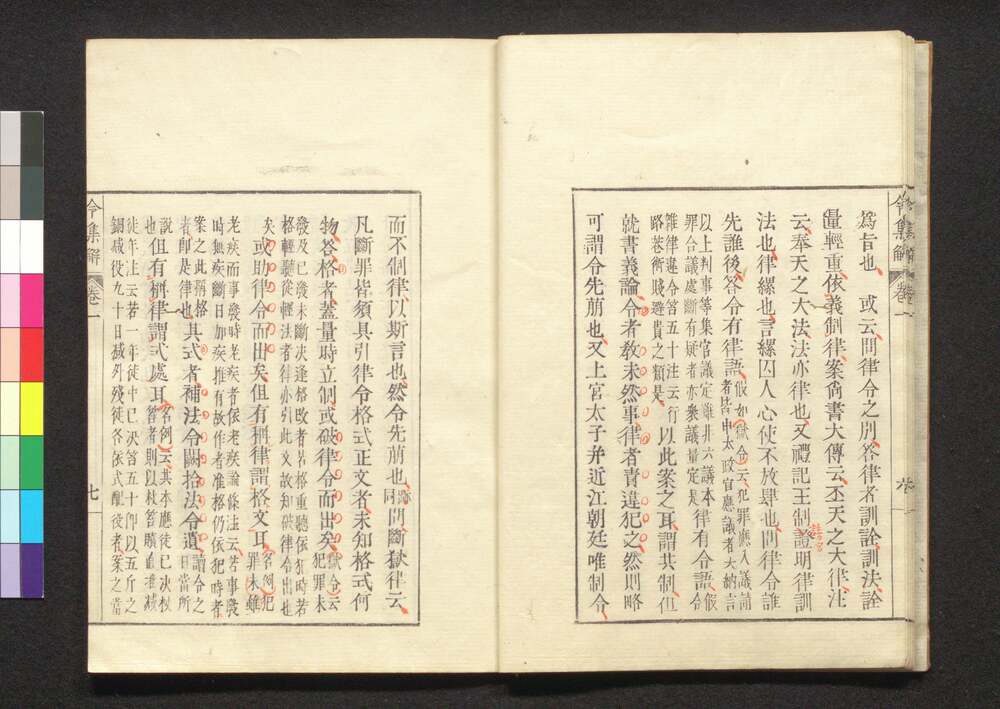 令集解 卷一 六
爲旨也、或云問律令之別、答律者訓詮訓法、詮
量輕重、依義制律、案尚書大傳云、丕天之大律、注
云、奉天之大法、法亦律也、又禮記王制證明律訓
法也、律縲也、言縲囚人心使不放肆也、問律令誰
先誰後、答令有律語、假如獄令云、犯罪應入議請
者皆申太政官、應議者大納言
以上判事等集官議定、雖非六議、本
罪合議處斷有疑者、亦衆議量定是律有令語、假
雜律違令笞五十、注云、行令
路巷術賤避貴之類是以此案之耳、謂共制、但
就書義論、令者敎未然事、律者責違犯之然則略
可謂令先萠也、又上宮太子并近江朝廷唯制令
而不制律、以斯言也、然令先萠也、跡同問斷獄律云、
凡斷罪皆須具引律令格式正文者、未知格式何
物、答格者、蓋量時立制、或破律令而出矣、獄令云
犯罪未
發及已發未斷決逢格改者、若格重聽依犯時、若
格輕聽從輕法者、律亦引此文、故知破律令出也
矣、或助律令而出矣、但有稱律謂格文耳、名例、犯
罪未雖
老疾而事發時老疾者、依老疾論條注云、若事發
時無疾、斷日加疾、推有故作者、准格仍依犯時者
案之此稱格
者卽是律也其式者補法令闕、拾法令遺、讀令之
日當所
說也但有稱律謂式處耳、名例云、其本應徒已決杖
笞者、則以杖笞贖直准減
徒年、注云、若一年徒中已決笞五十、卽以五斤之
銅減役九十日、減外殘徒各依式配役者、案之當
令集解 卷一 七